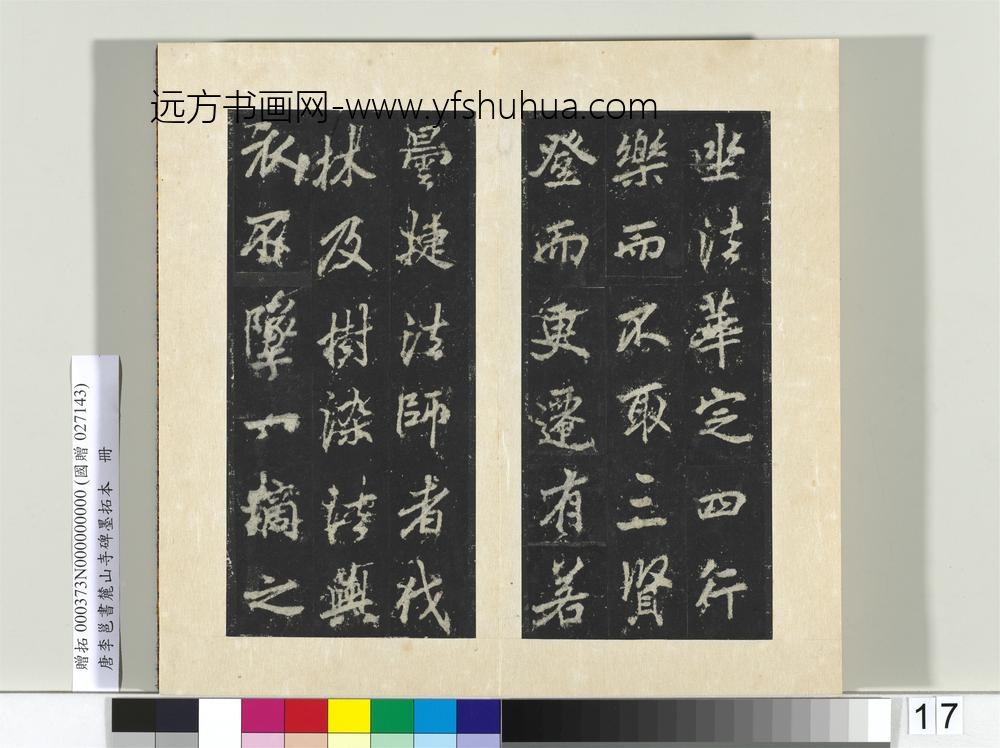 远方书画网-www.yfshuhua.com
坐法華定四行
樂而不取三賢
登而更遷有若
曇捷法師者伐
林及樹染法與
衣罔墜一滴之
贈拓 000373N000000000 (國贈 027143)
唐李邕書麓山寺碑墨拓本 冊
17